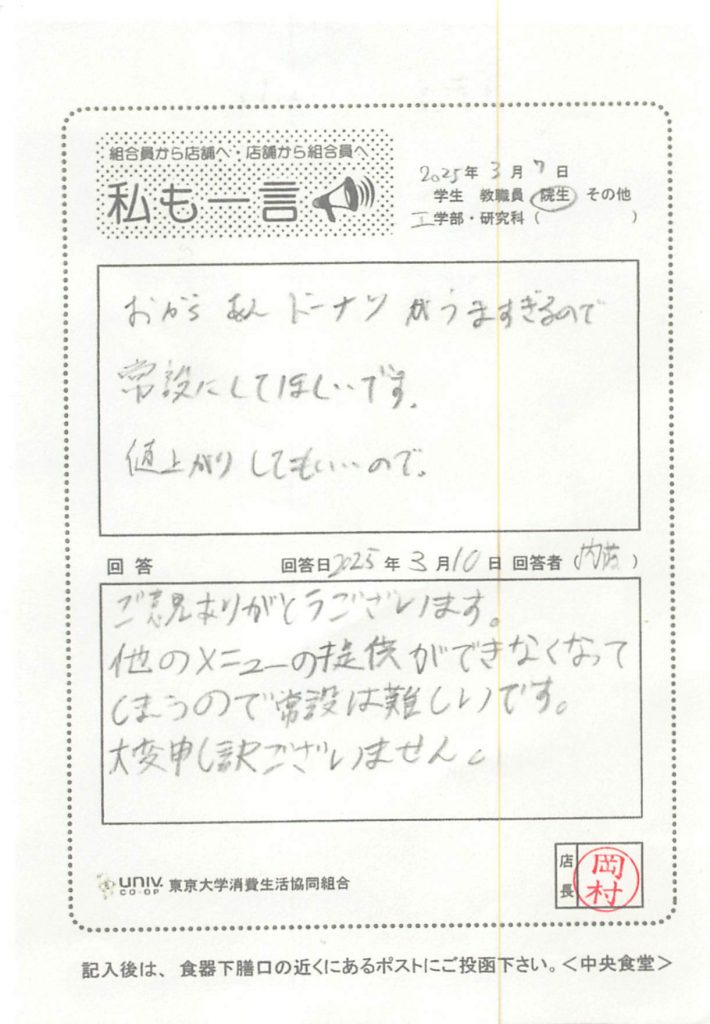 組合員から店舗へ・店舗から組合員へ
私も一言
2025年3月7日
学生 教職員 院生 その他
工学部・研究科( )
おからあんドーナツがうますぎるので
常設にしてほしいです。
値上がりしてもいいので。
回答 回答日2025年3月10日 回答者(内藤)
ご意見ありがとうございます。
他のメニューの提供ができなくなって
しまうので常設は難しいです。
大変申し訳ございません。
UNIV. CO-OP 東京大学消費生活協同組合
店長 岡村
記入後は、食器下膳口の近くにあるポストにご投函下さい。<中央食堂>